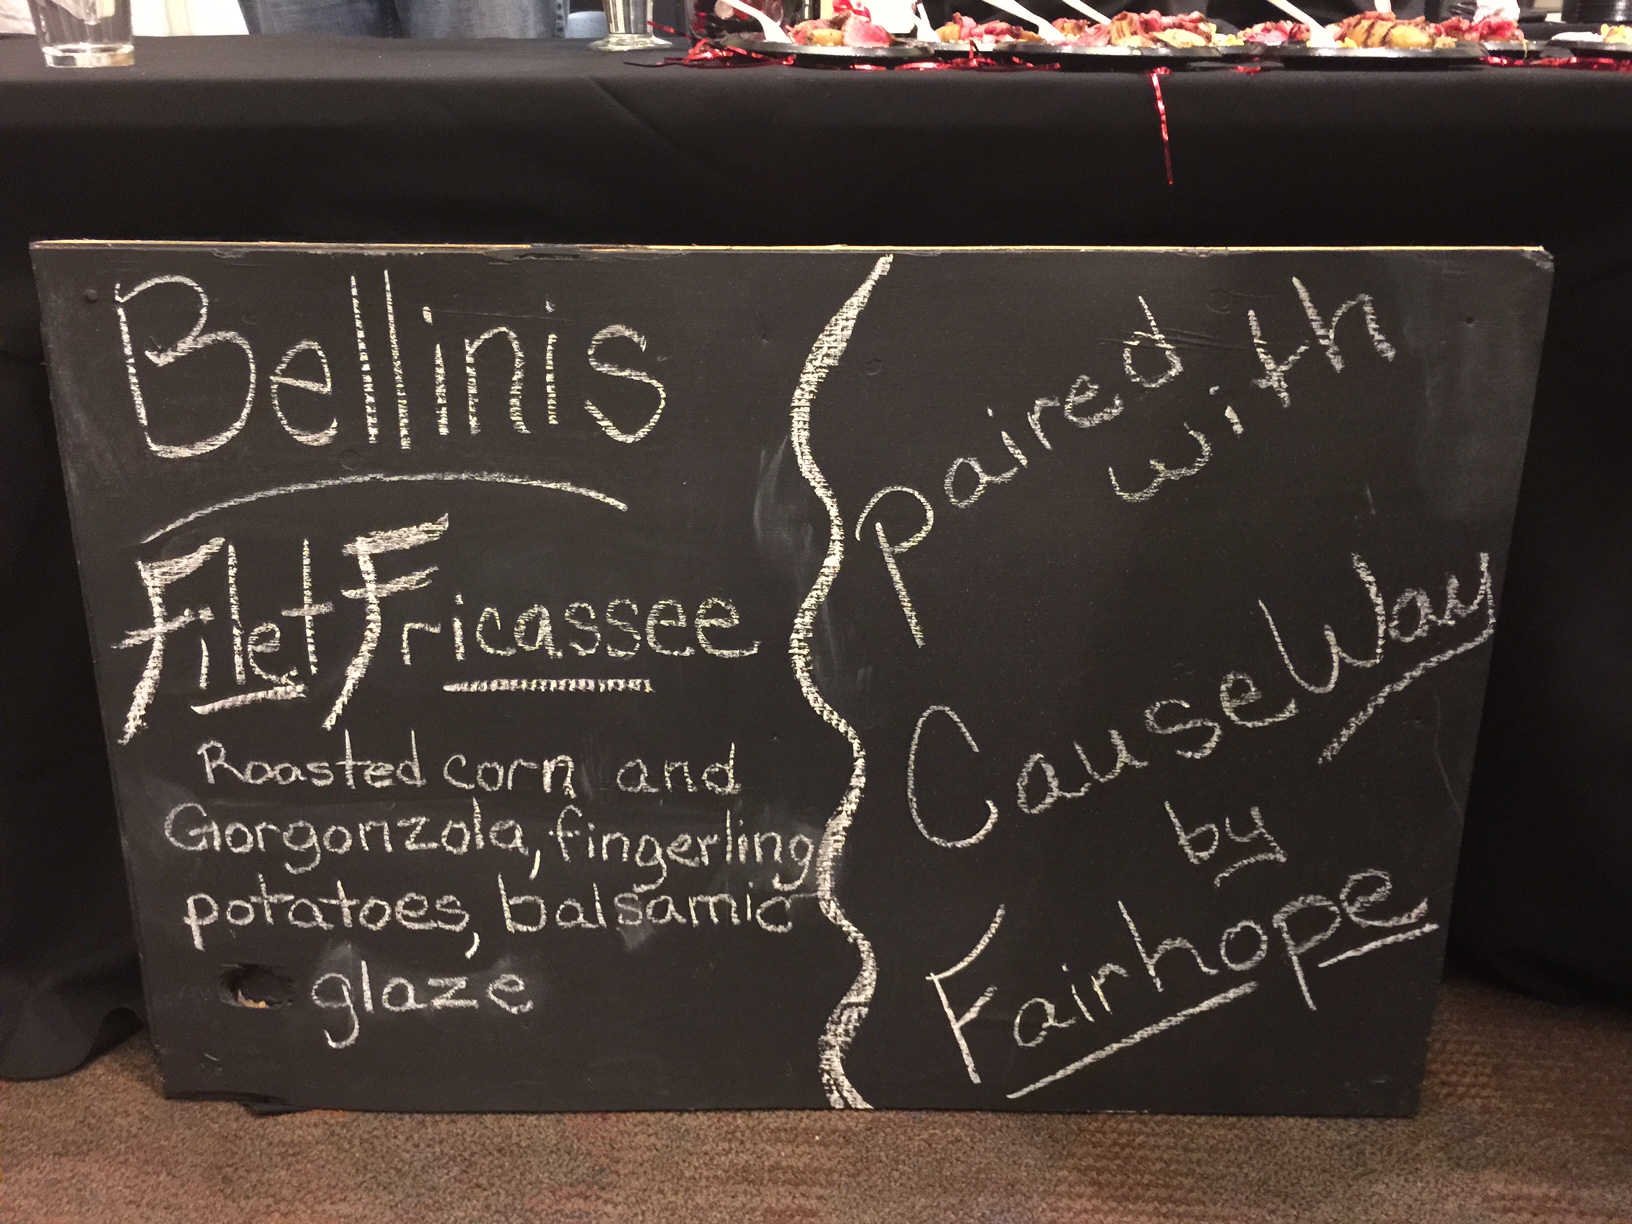 Bellinis
Filet Fricassee
Roasted corn and
Gorgonzola, fingerling
potatoes, balsamic
glaze
Paired
with
CauseWay
by
Fairhope